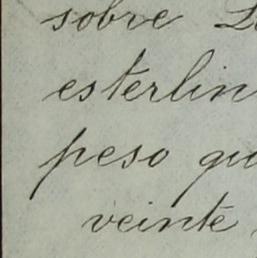 sobre
esterlin
peso
veinte